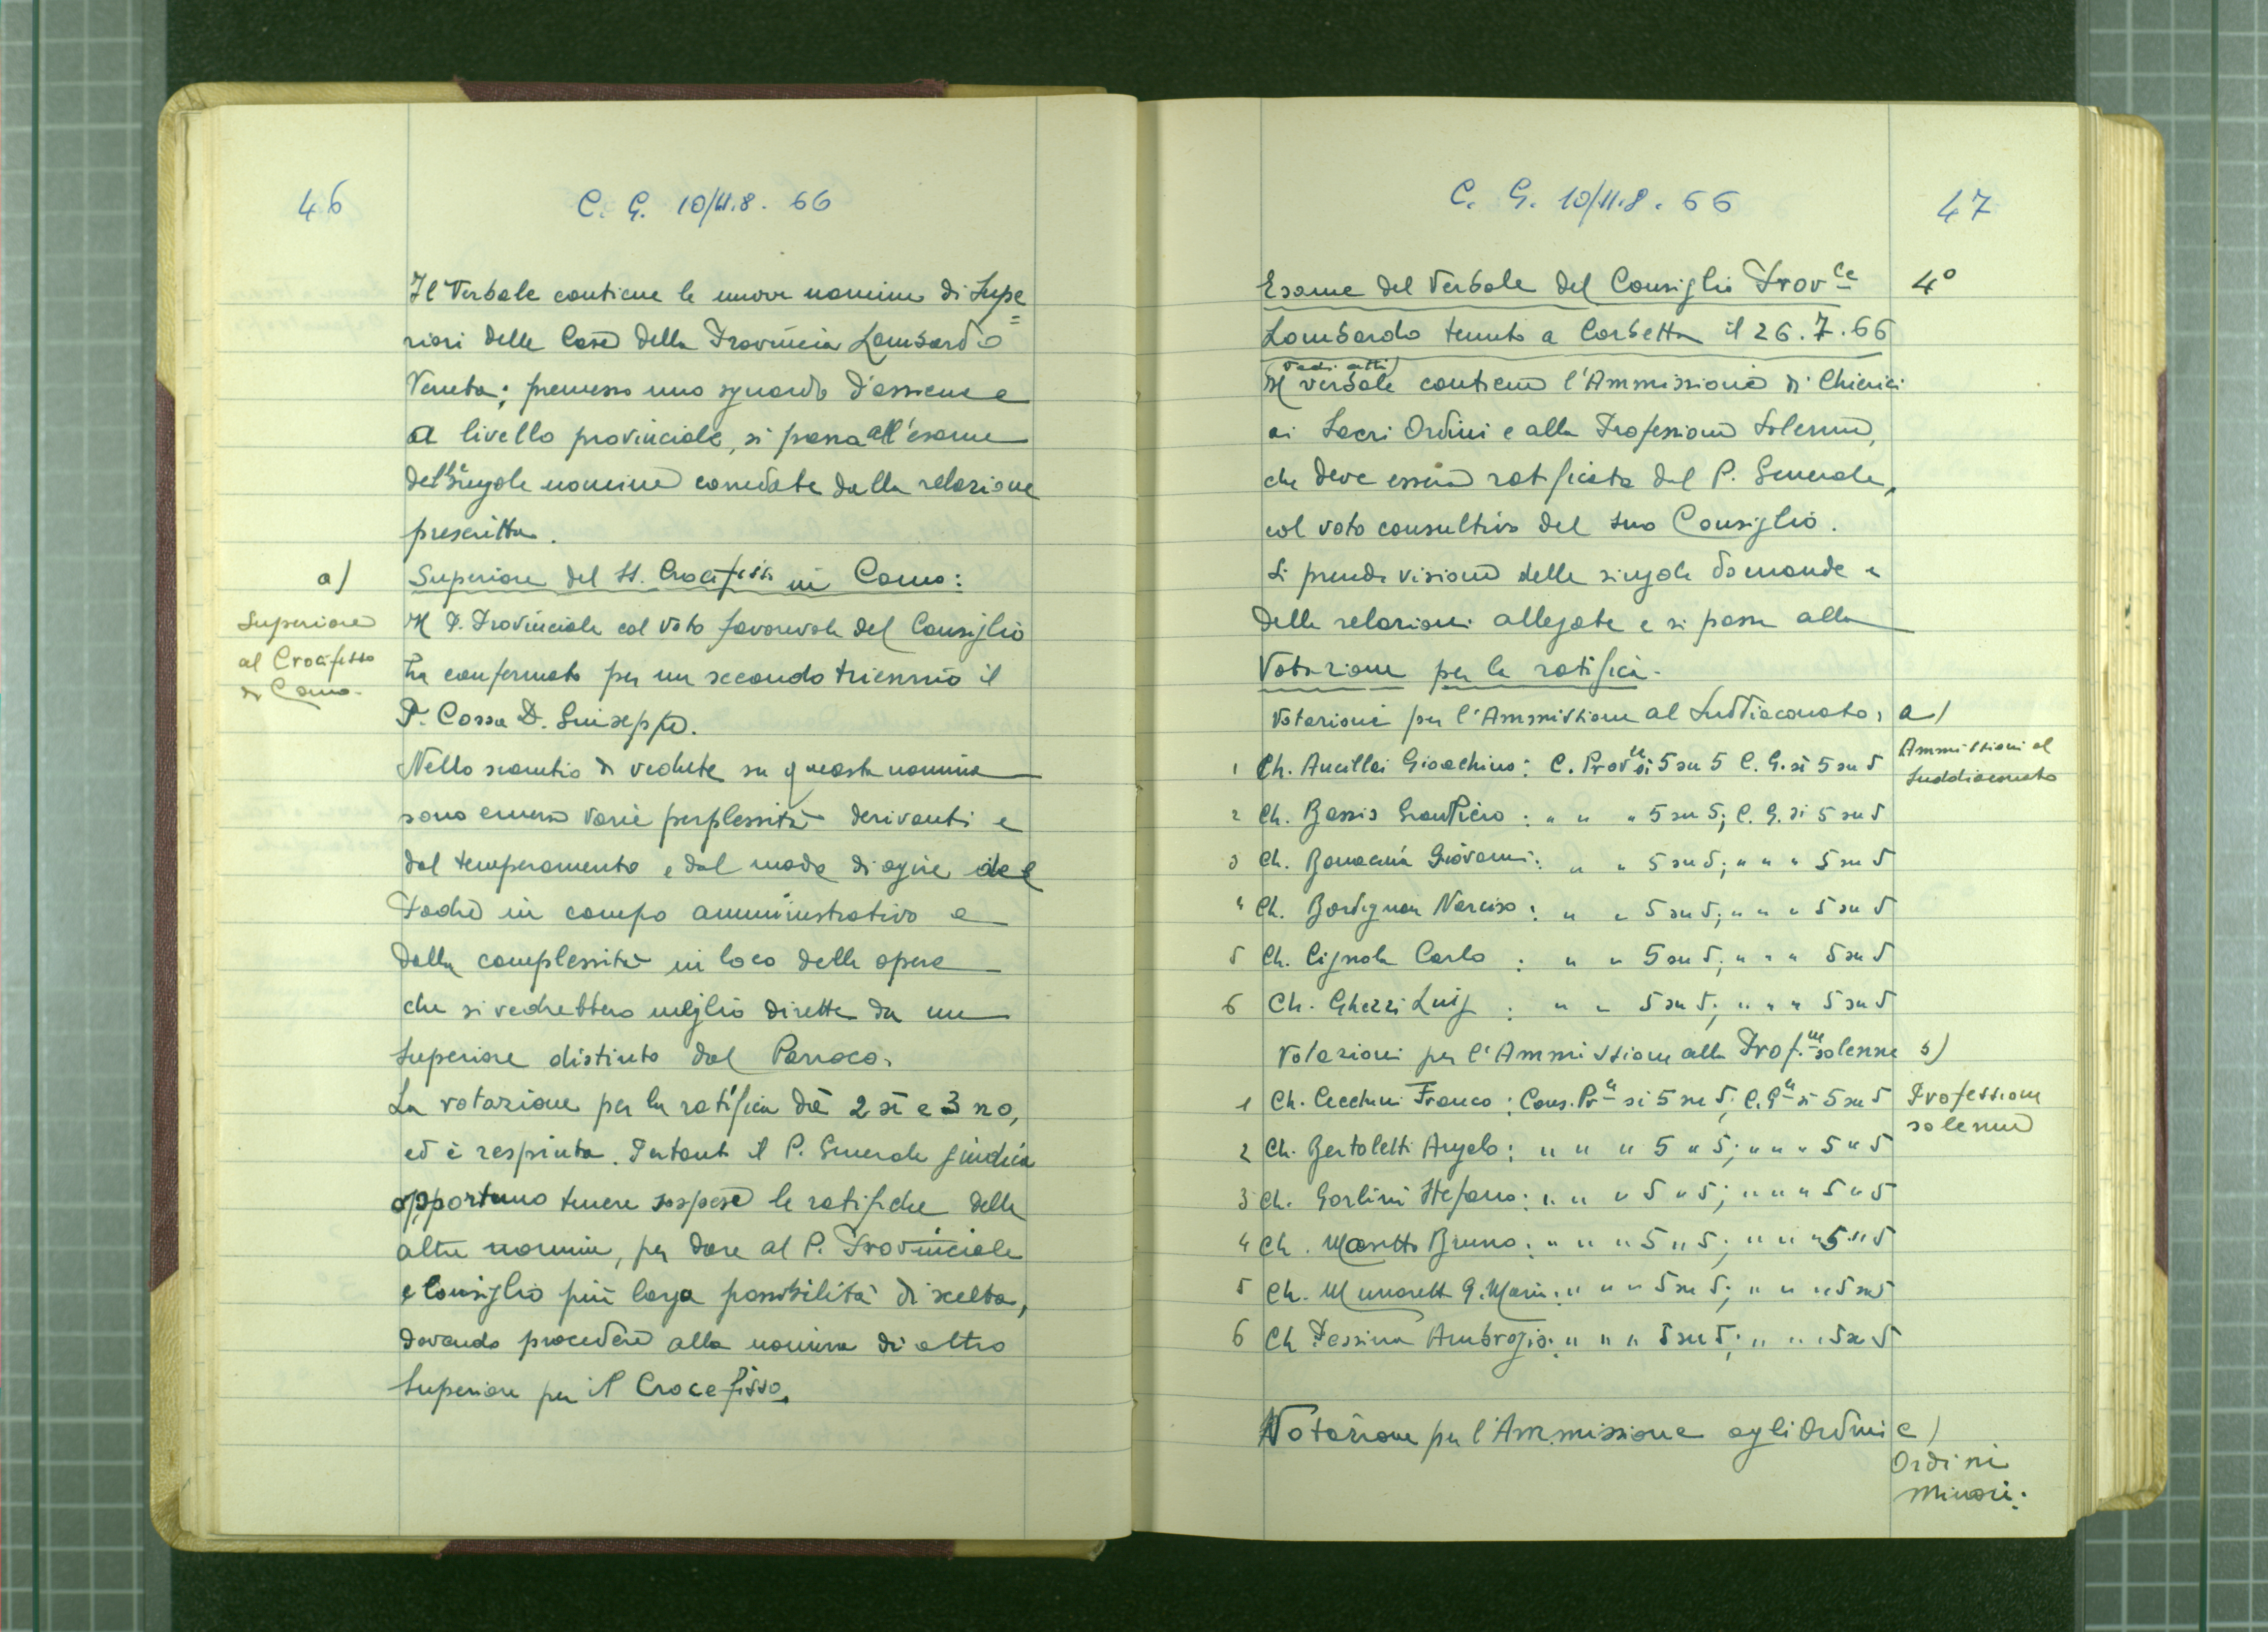 46
C. G. 10/11.8. 66
Il Verbale contiene le nuove nomine di Supe=
riori delle Case della Provincia Lombardo
Veneta; premesso uno sguardo d'assieme e
a livello provinciale, si passa all'esame
delle singole nomine corredate dalla relazione
prescritta.
a)
Superiore del SS. Crocifisso in Como:
Superiore
al Crocifisso
di Como.
Il P. Provinciale col voto favorevole del Consiglio
ha confermato per un secondo triennio il
P. Cossa D. Giuseppe.
Nello scambio di vedute su questa nomina
sono emerse varie perplessità derivanti e
dal temperamento e dal modo di agire del
Padre in campo amministrativo e
dalla complessità in loco delle opere
che si vedrebbero meglio dirette da un
Superiore distinto dal Parroco.
La votazione per la ratifica dà 2 sì e 3 no,
ed è respinta. Pertanto il P. Generale giudica
opportuno tenere sospese le ratifiche delle
altre nomine, per dare al P. Provinciale
e Consiglio più larga possibilità di scelta,
dovendo procedere alla nomina di altro
Superiore per il Crocefisso.
C. G. 10/11.8. 66
47
Esame del Verbale del Consiglio Prov.le
4°
Lombardo tenuto a Corbetta il 26.7.66
(vedi atti)
Il verbale contiene l'Ammissione di Chierici
ai Sacri Ordini e alla Professione Solenne,
che deve essere ratificata dal P. Generale,
col voto consultivo del suo Consiglio.
Si prende visione delle singole domande e
delle relazioni allegate e si passa alla
Votazione per la ratifica.
Votazioni per l'Ammissione al Suddiaconato:
a)
Ammissioni al
Suddiaconato
1 Ch. Ancillai Gioachino: C. Prov.le sì 5 su 5 C. G. sì 5 su 5
2 Ch. Bassis GianPiero: " " " 5 su 5; C. G. sì 5 su 5
3 Ch. Bonacina Giovanni: " " 5 su 5; " " " 5 su 5
4 Ch. Bordignon Narciso: " " 5 su 5; " " " 5 su 5
5 Ch. Cignola Carlo : " " 5 su 5; " " " 5 su 5
6 Ch. Ghezzi Luigi : " " 5 su 5; " " " 5 su 5
Votazioni per l'Ammissione alla Prof.ne solenne
b)
Professione
solenne
1 Ch. Cecchini Franco: Cons. Pr.le sì 5 su 5; C. G.le sì 5 su 5
2 Ch. Bertoletti Angelo: " " " 5 " 5; " " " 5 " 5
3 Ch. Gorlini Stefano: " " " 5 " 5; " " " 5 " 5
4 Ch. Masetto Bruno: " " " 5 " 5; " " " 5 " 5
5 Ch. Munaretto G. Maria: " " " 5 su 5; " " " 5 su 5
6 Ch Pessina Ambrogio: " " " 5 su 5; " " " 5 su 5
Votazione per l'Ammissione agli Ordini
c)
Ordini
Minori: